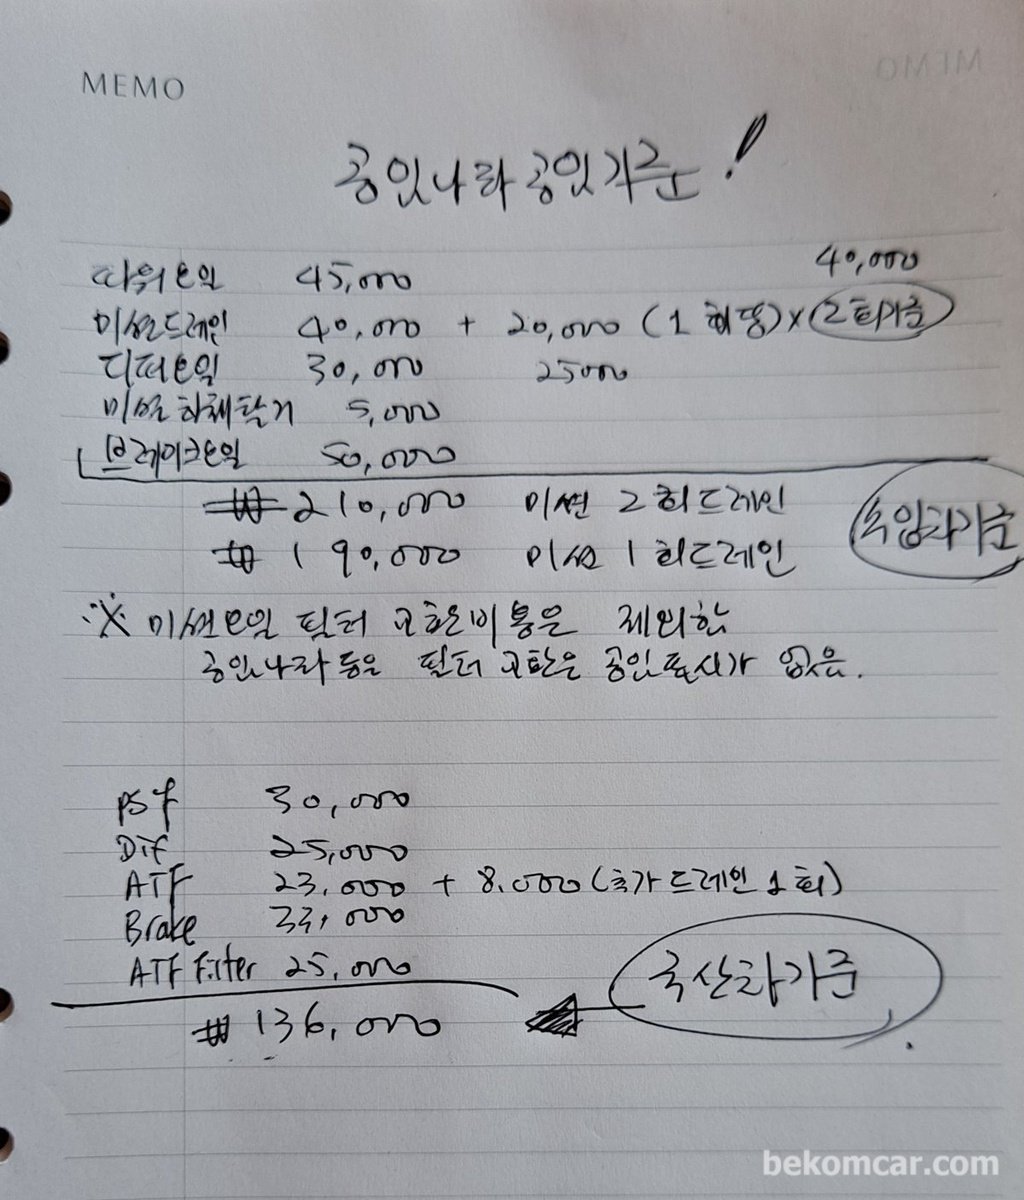 MEMO
공임나라 공임기준!
파워오일 45,000 40,000
미션드레인 40,000 + 20,000 (1회당) × 2회기준
디퍼오일 30,000 25000
미션하체탈거 5,000
브레이크오일 50,000
₩ 210,000 미션 2회드레인
₩ 190,000 미션 1회드레인
수입차기준
※ 미션오일 필터 교환비용은 제외함
공임나라등은 필터 교환은 공임표시가 없음.
PSF 30,000
Dif 25,000
ATF 23,000 + 8,000 (추가드레인 1회)
Brake 33,000
ATF Filter 25,000
국산차기준
₩ 136,000
bekomcar.com